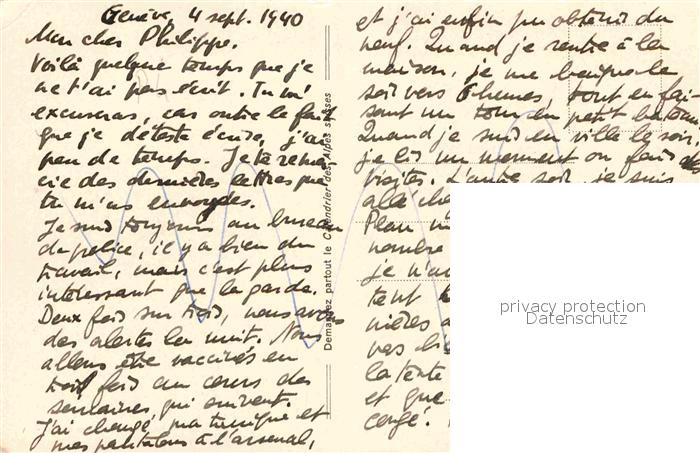 Genève, 4 sept. 1940
Mon cher Philippe.
Voilà quelque temps que je
ne t'ai pas écrit. Tu m'
excuseras, car outre le fait
que je déteste écrire, j'ai
peu de temps. Je te remer-
cie des dernières lettres que
tu m'as envoyées.
Je suis toujours au bureau
de police, il y a bien du
travail, mais c'est plus
intéressant que la garde.
Deux fois sur trois, nous avons
des alertes la nuit. Nous
allons être vaccinés en
trois fois au cours des
semaines, qui suivent.
J'ai changé, ma tunique et
mes pantalons à l'arsenal,
Demandez partout le Calendrier des Alpes suisses
et j'ai enfin pu obtenir du
neuf. Quand je rentre à la
maison, je me baigne le
soir vers 6 heures, tout en fai-
sant un tour en petit bateau.
Quand je suis en ville le soir,
je lis un moment ou fais des
visites. L'autre soir, je suis
allé che
Plan
nombre
je n'a
tent
nières a
vas bi
la tente
et que
congé.
privacy protection
Datenschutz